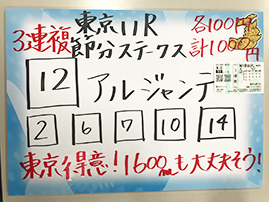 3連複 東京11R 各100円
節分ステークス 計1000円
12 アルジャンテ
2 6 7 10 14
東京得意!1600mも大丈夫そう!